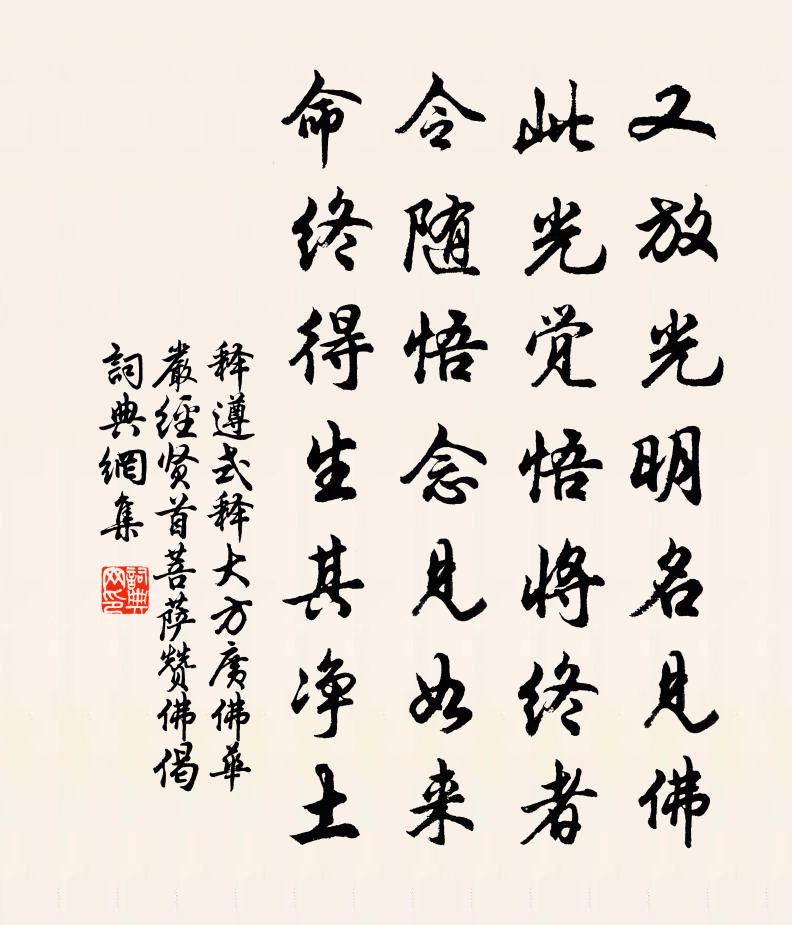 又放光明名见佛
此光觉悟将终者
令随悟念见如来
命终得生其净土
释遵式释大方广佛华
严经贤首菩萨赞佛偈
詞典網集
詞典網印